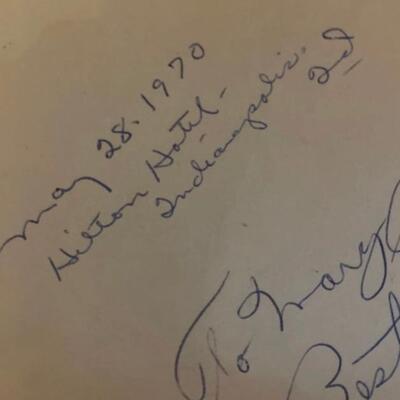 May 28, 1970
Hilton Hotel -
Indianapolis, Ind
To Mary
Best